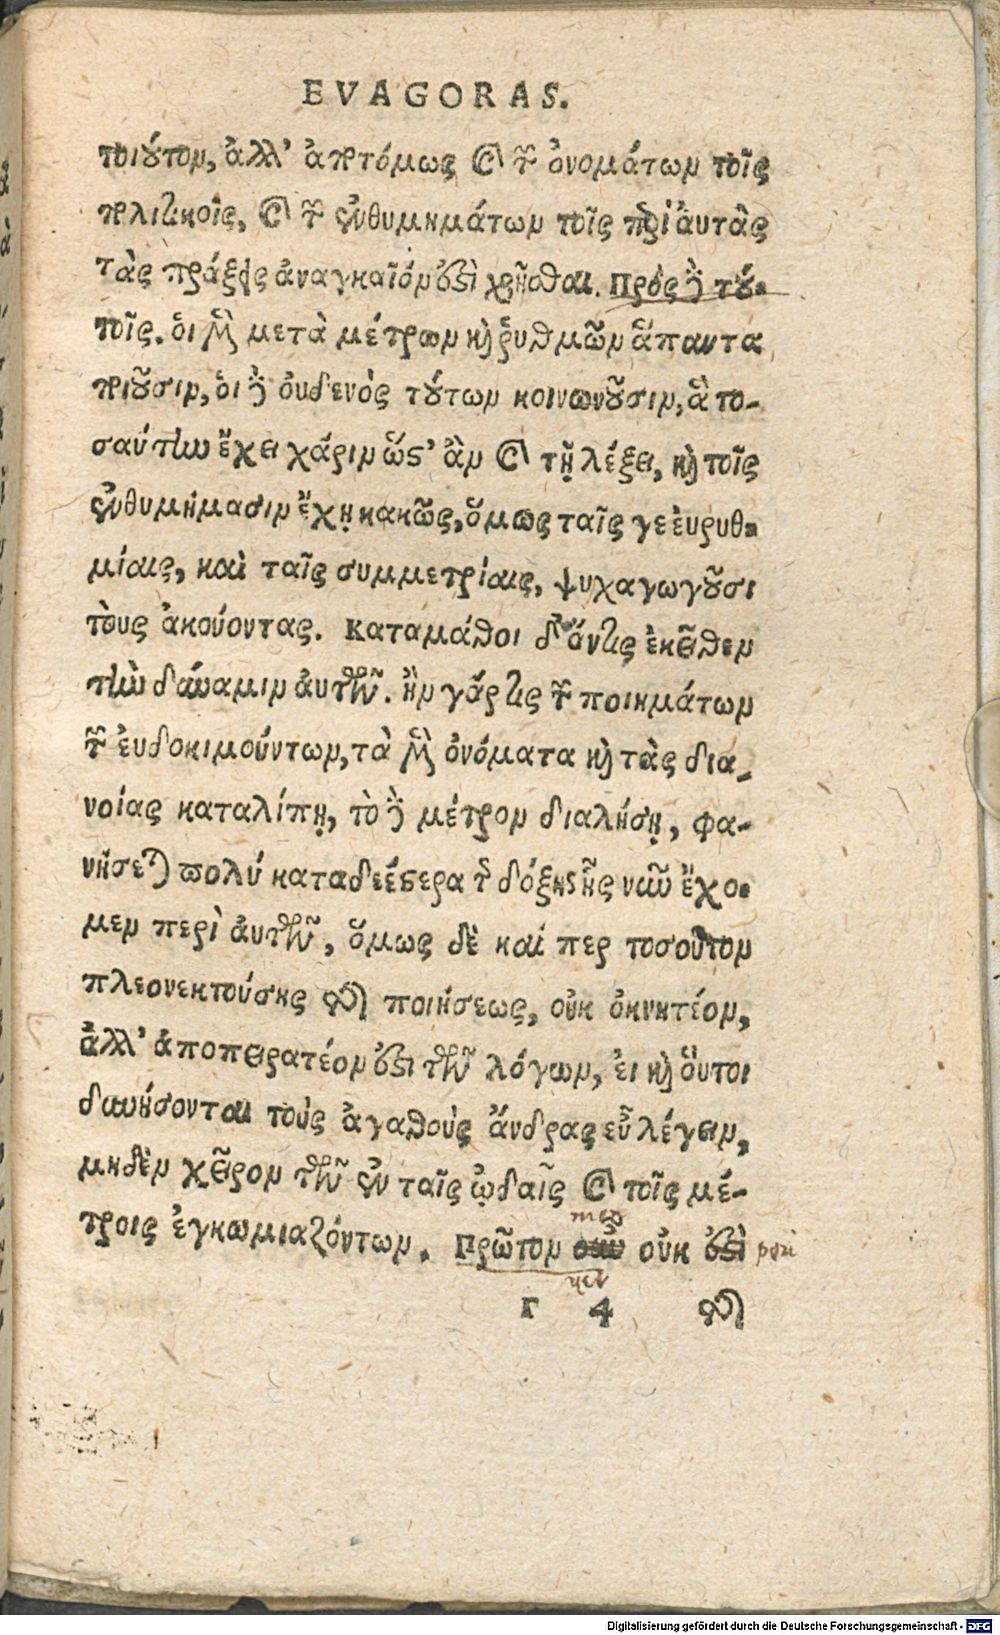 EVAGORAS.
τοιούτον, ἀλλ' ἀποτόμως καὶ τῶν ὀνομάτων τοῖς
πολιτικοῖς, καὶ τῶν ἐνθυμημάτων τοῖς περὶ ἀυτὰς
τὰς πράξεις ἀναγκαῖόν ἐστι χρῆσθαι. Πρὸς δὲ τού-
τοις. ὁι μὲν μετὰ μέτρων καὶ ῥυθμῶν ἅπαντα
ποιοῦσιν, ὁι δὲ ὀυδενὸς τούτων κοινωνοῦσιν, ἃ το-
σαύτην ἔχει χάριν ὥστ' ἂν καὶ τῇ λέξει, καὶ τοῖς
ἐνθυμήμασιν ἔχῃ κακῶς, ὅμως ταῖς γε ἐυρυθ-
μίαις, καὶ ταῖς συμμετρίαις, ψυχαγωγοῦσι
τοὺς ἀκούοντας. Καταμάθοι δ' ἄν τις ἐκεῖθεν
τὴν δύναμιν ἀυτῶν. ἢν γάρ τις τῶν ποιημάτων
τῶν ἐυδοκιμούντων, τὰ μὲν ὀνόματα καὶ τὰς δια-
νοίας καταλίπῃ, τὸ δὲ μέτρον διαλήσῃ, φα-
νήσεται πολύ καταδεέστερα τῆς δόξης ἧς νῦν ἔχο-
μεν περὶ ἀυτῶν, ὅμως δὲ καί περ τοσοῦτον
πλεονεκτούσης τῆς ποιήσεως, οὐκ ὀκνητέον,
ἀλλ' ἀποπειρατέον ἐστι τῶν λόγων, ἐι καὶ ὅυτοι
δυνήσονται τοὺς ἀγαθοὺς ἄνδρας εὖ λέγειν,
μηδὲν χεῖρον τῶν ἐν ταῖς ᾠδαῖς καὶ τοῖς μέ-
τροις ἐγκωμιαζόντων. Πρῶτον οὖν οὐκ ἐστὶ
Γ 4 τῆς
Digitalisierung gefördert durch die Deutsche Forschungsgemeinschaft - DFG